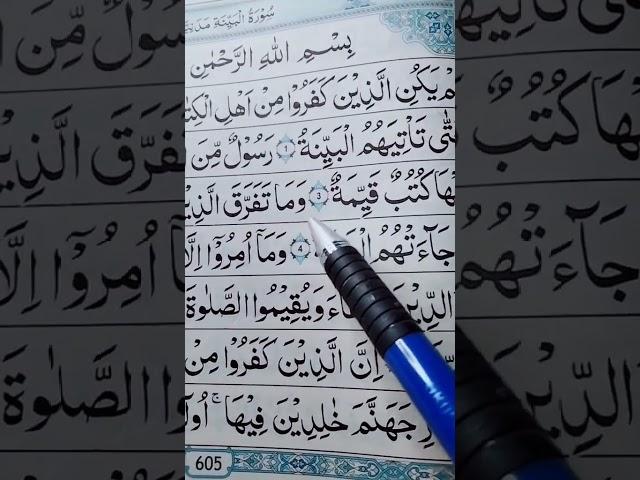 سُوْرَةُ الْبَيِّنَة
بِسْمِ اللهِ الرَّحْمٰنِ
يَكُنِ الَّذِيْنَ كَفَرُوْا مِنْ اَهْلِ
تَاْتِيَهُمُ الْبَيِّنَةُ 1 رَسُوْلٌ مِّنَ
هَا كُتُبٌ قَيِّمَةٌ 3 وَمَا تَفَرَّقَ الَّذِيْنَ
جَآءَتْهُمُ 4 وَمَآ اُمِرُوْٓا اِلَّا
الدِّيْنَ وَيُقِيْمُوا الصَّلٰوةَ
اِنَّ الَّذِيْنَ كَفَرُوْا مِنْ
جَهَنَّمَ خٰلِدِيْنَ فِيْهَا ۚ
605